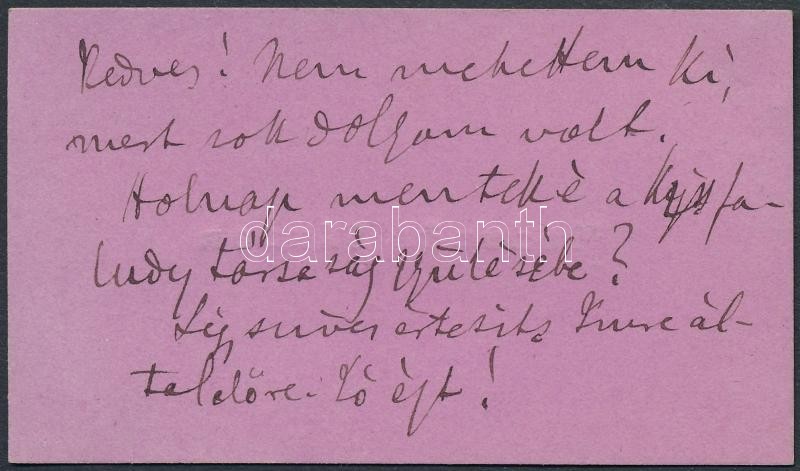 Kedves! Nem mehettem ki,
mert sok dolgom volt.
Holnap mentek è a Kisfa-
ludy társaság gyűlésébe?
Légy szives értesits Imre ál-
tal előre. Jó éjt!
darabanth